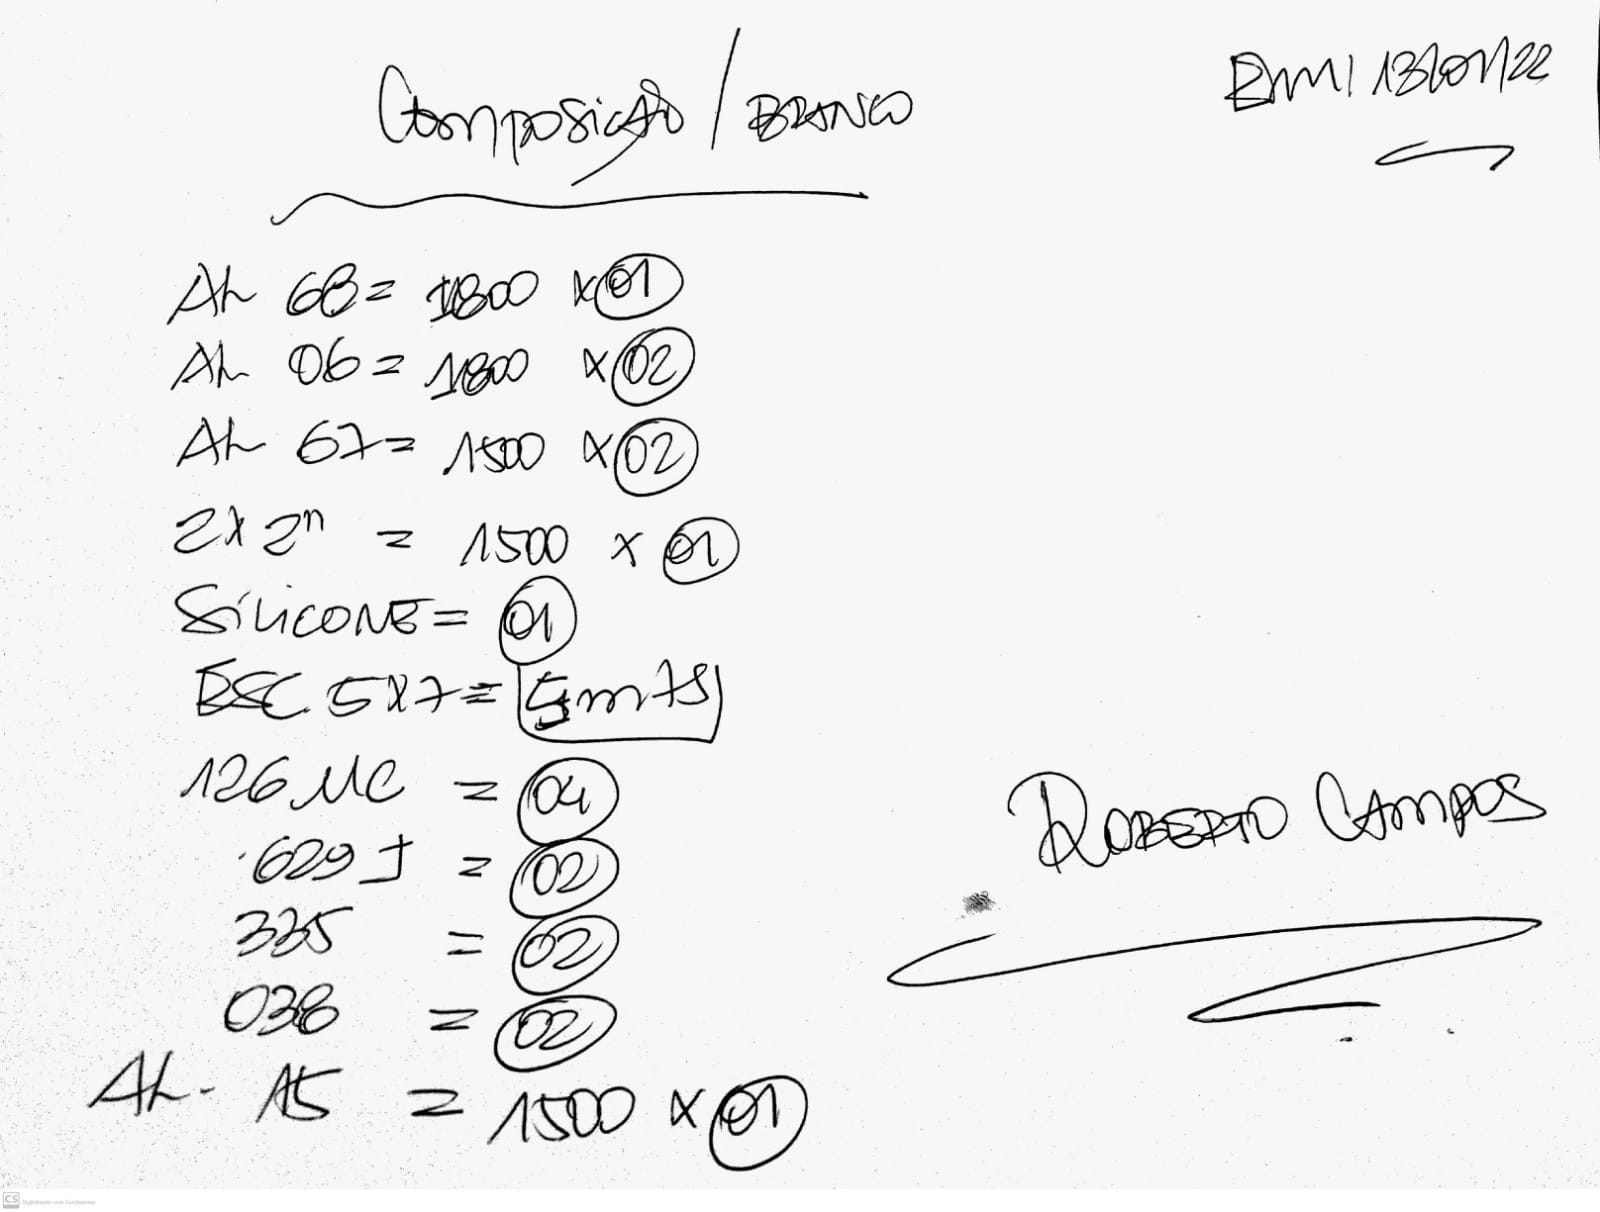 Composição / BRANCO
Em 13/01/22
AL 68 = 1800 x 01
AL 06 = 1800 x 02
AL 67 = 1500 x 02
2x2n = 1500 x 01
SILICONE = 01
ESC 5x7 = 5 mts
126 MC = 04
629 J = 02
335 = 02
038 = 02
AL - 15 = 1500 x 01
ROBERTO CAMPOS
CS Digitalizado com CamScanner